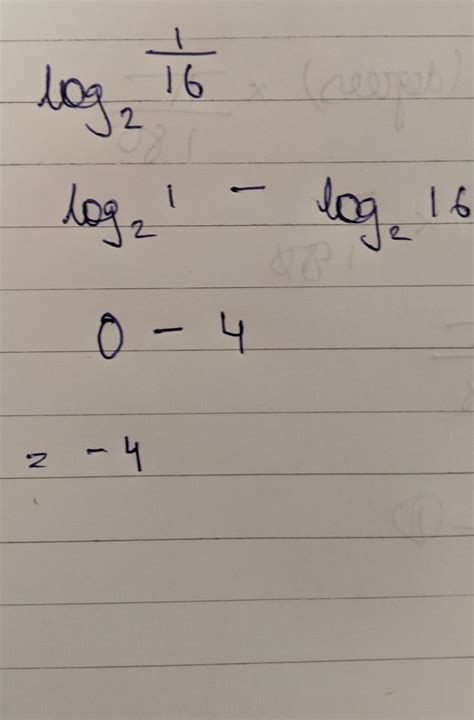 log₂ 1/16
log₂ 1 - log₂ 16
0 - 4
= -4